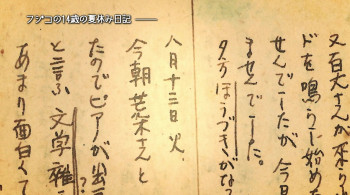 フジコの14歳の夏休み日記 ――
さんが来
ドを鳴らし始め
せんでしたが 今
ほうづきがな
ませんでした。
八月十三日 火、
今朝荒木さんと
たのでピアノが出
と言ふ文学雑
あまり面白くて